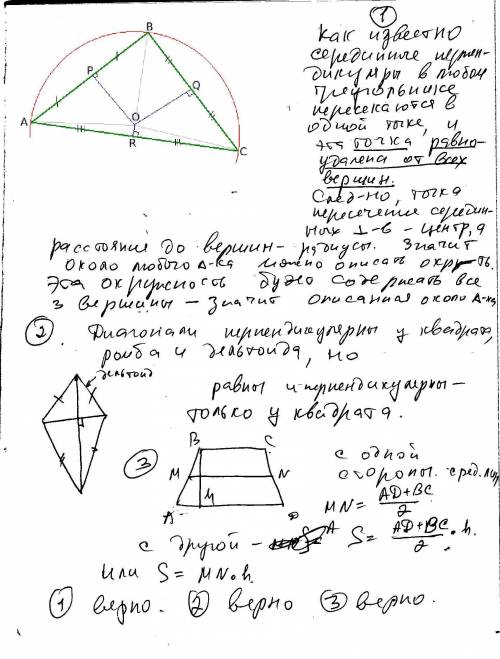 1
Как известно
серединные перпен-
дикуляры в любом
треугольнике
пересекаются в
одной точке, и
эта точка равно-
удалена от всех
вершин.
След-но, точка
пересечения середин-
ных ⊥-в - центр, а
расстояния до вершин - радиусы. Значит
около любого Δ-ка можно описать окр-ть.
Эта окружность будет содержать все
3 вершины - значит описанная около Δ-ка
B
P
Q
A
O
R
C
2 Диагонали перпендикулярны у квадрата,
ромба и дельтоида, но
дельтоид
равны и перпендикулярны -
только у квадрата.
3
B C
M N
h
A D
с одной
стороны. сред. лин
MN = AD+BC / 2
с другой - S = AD+BC / 2 · h.
или S = MN · h.
1 верно. 2 верно 3 верно.